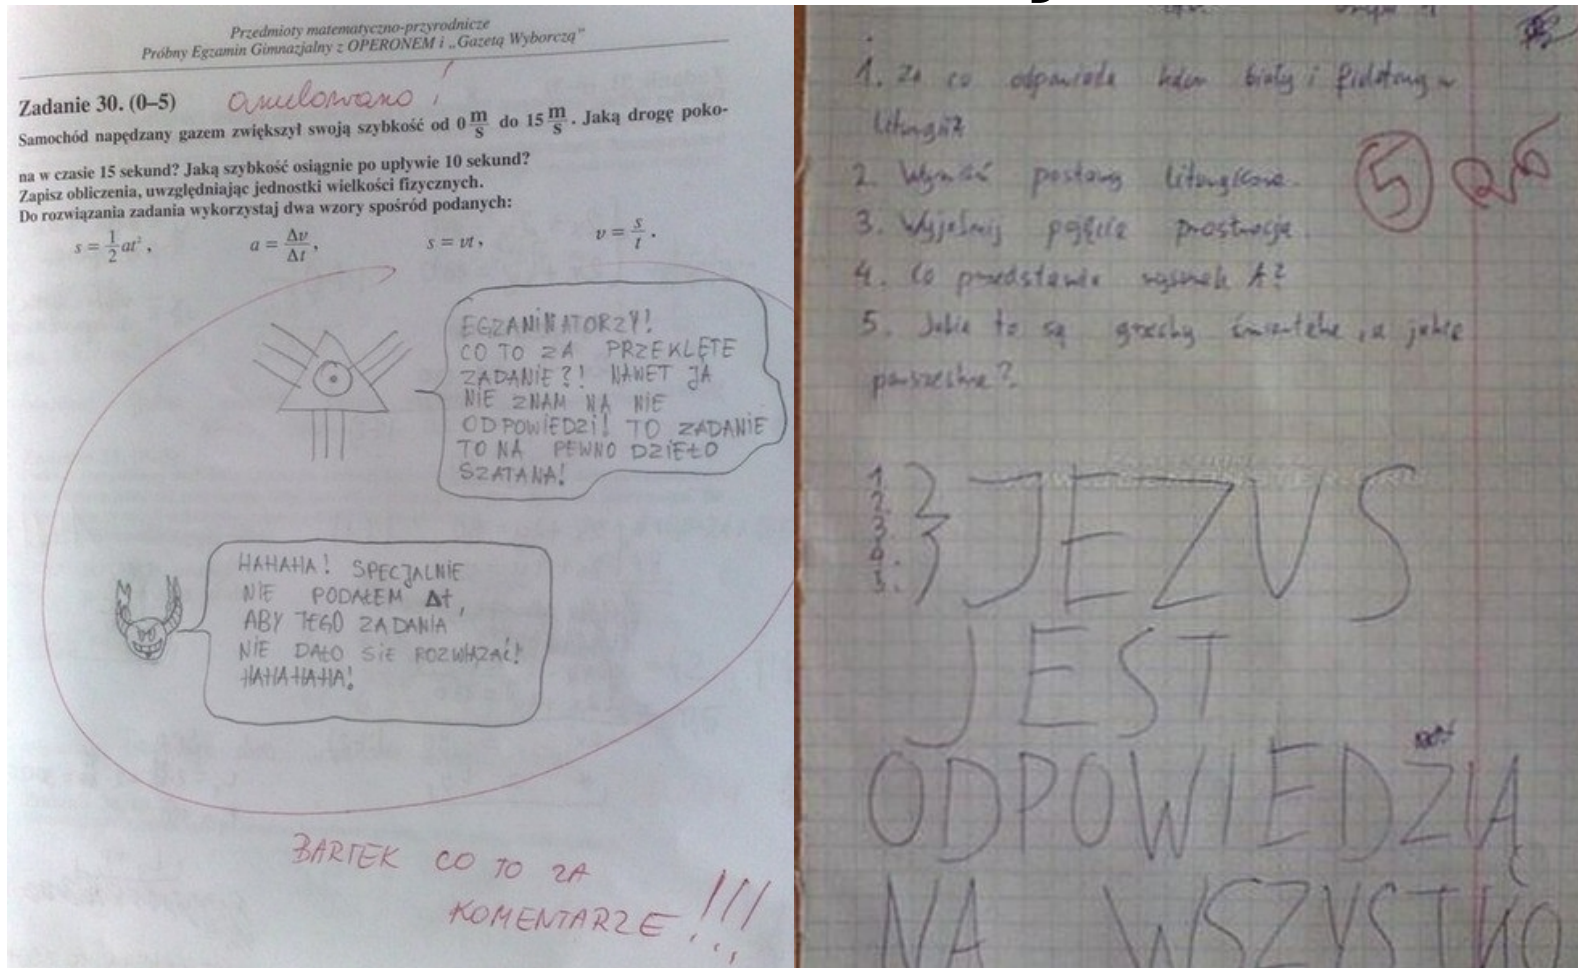 Przedmioty matematyczno-przyrodnicze
Próbny Egzamin Gimnazjalny z OPERONEM i „Gazetą Wyborczą”
Zadanie 30. (0–5)
anulowano!
Samochód napędzany gazem zwiększył swoją szybkość od 0 m/s do 15 m/s. Jaką drogę poko-
na w czasie 15 sekund? Jaką szybkość osiągnie po upływie 10 sekund?
Zapisz obliczenia, uwzględniając jednostki wielkości fizycznych.
Do rozwiązania zadania wykorzystaj dwa wzory spośród podanych:
s = 1/2 at², a = Δv/Δt, s = vt, v = s/t.
EGZANINATORZY!
CO TO ZA PRZEKLĘTE
ZADANIE?! NAWET JA
NIE ZNAM NA NIE
ODPOWIEDZI! TO ZADANIE
TO NA PEWNO DZIEŁO
SZATANA!
HAHAHA! SPECJALNIE
NIE PODAŁEM Δt,
ABY TEGO ZADANIA
NIE DAŁO SIĘ ROZWIĄZAĆ!
HAHAHAHA!
BARTEK CO TO ZA
KOMENTARZE!!!
1. Za co odpowiada biały i w
liturgii?
2. Wymień postawy liturgiczne.
3. Wyjaśnij pojęcie prostracja.
4. Co przedstawia rysunek A?
5. Jakie to są grzechy śmiertelne, a jakie
powszednie?
5
1.
2.
3.
4.
5.
JEZUS
JEST
ODPOWIEDZIĄ
NA WSZYSTKO